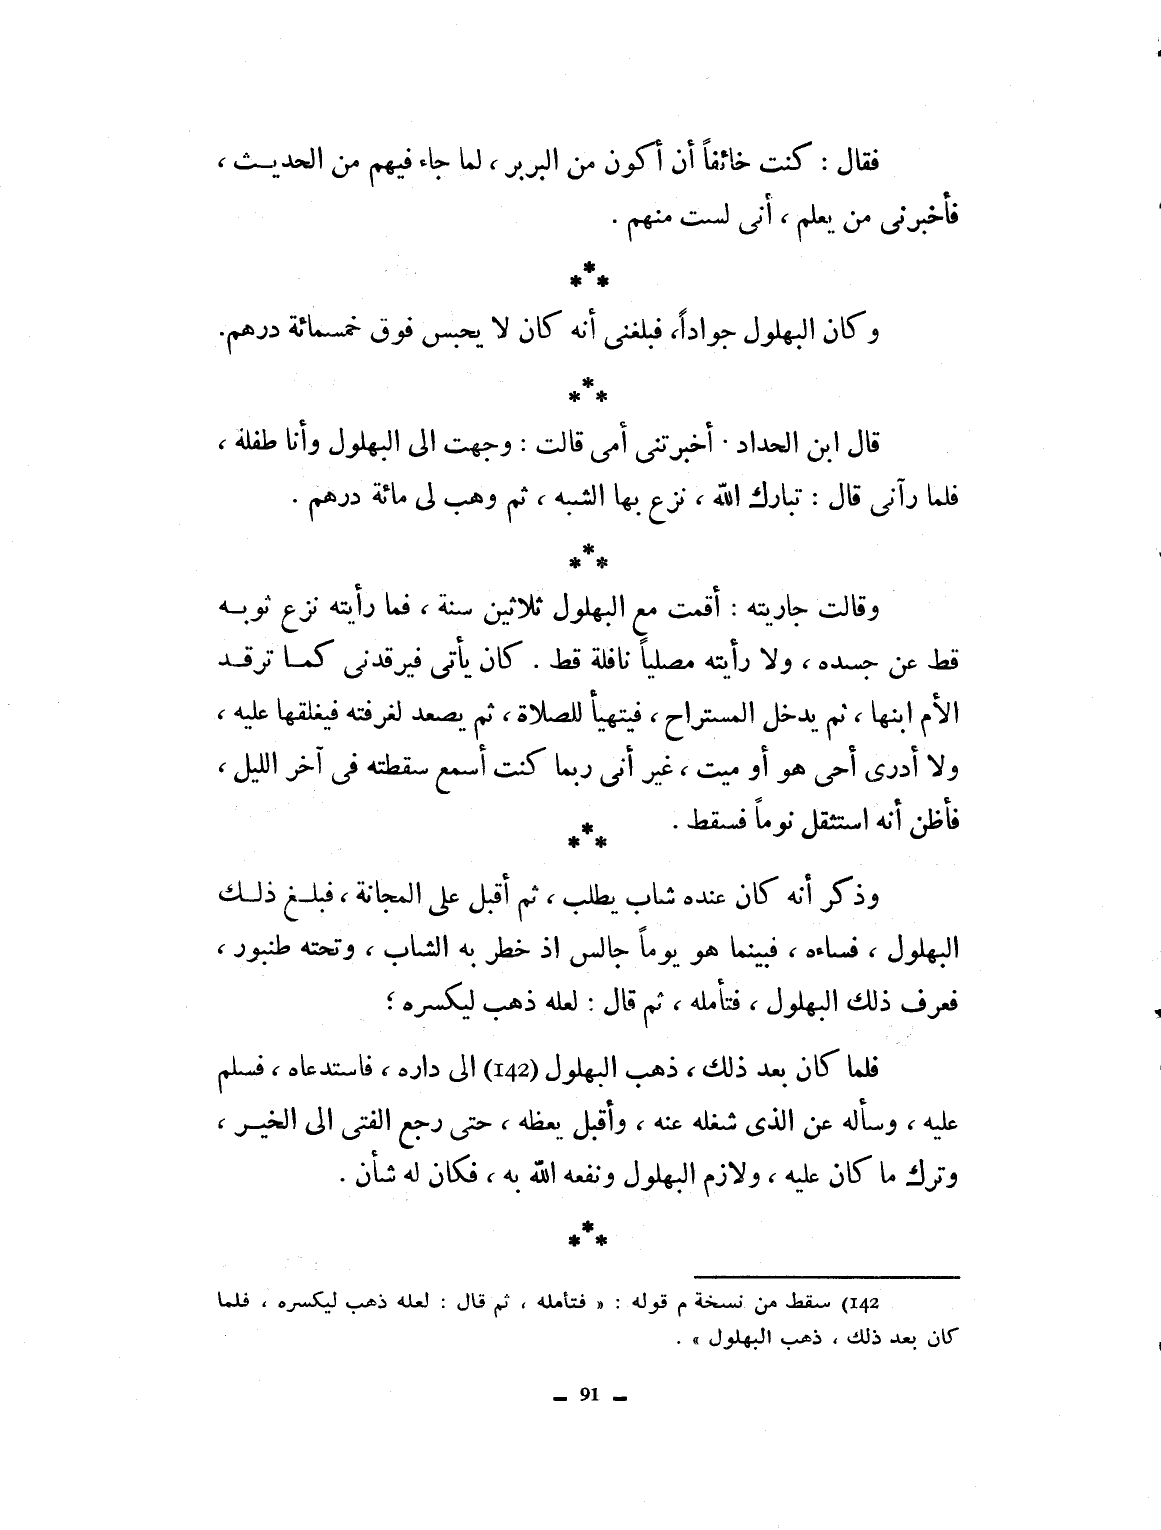 فقال : كنت خائفاً أن أكون من البربر ، لما جاء فيهم من الحديـث ،
فأخبرنى من يعلم ، أنى لست منهم .
***
وكان البهلول جواداً، فبلغنى أنه كان لا يحبس فوق خمسمائة درهم.
***
قال ابن الحداد . أخبرتنى أمى قالت : وجهت الى البهلول وأنا طفلة ،
فلما رآنى قال : تبارك الله ، نزع بها الشبه ، ثم وهب لى مائة درهم .
***
وقالت جاريته : أقمت مع البهلول ثلاثين سنة ، فما رأيته نزع ثوبـه
قط عن جسده ، ولا رأيته مصلياً نافلة قط . كان يأتى فيرقدنى كمـا ترقـد
الأم ابنها ، ثم يدخل المستراح ، فيتهيأ للصلاة ، ثم يصعد لغرفته فيغلقها عليه ،
ولا أدرى أحى هو أو ميت ، غير أنى ربما كنت أسمع سقطته فى آخر الليل ،
فأظن أنه استثقل نوماً فسقط .
***
وذكر أنه كان عنده شاب يطلب ، ثم أقبل على المجانة ، فبلـغ ذلـك
البهلول ، فساءه ، فبينما هو يوماً جالس اذ خطر به الشاب ، وتحته طنبور ،
فعرف ذلك البهلول ، فتأمله ، ثم قال : لعله ذهب ليكسره ؛
فلما كان بعد ذلك ، ذهب البهلول (142) الى داره ، فاستدعاه ، فسلم
عليه ، وسأله عن الذى شغله عنه ، وأقبل يعظه ، حتى رجع الفتى الى الخيـر ،
وترك ما كان عليه ، ولازم البهلول ونفعه الله به ، فكان له شأن .
***
142) سقط من نسخة م قوله : « فتأمله ، ثم قال : لعله ذهب ليكسره ، فلما
كان بعد ذلك ، ذهب البهلول » .
– 91 –